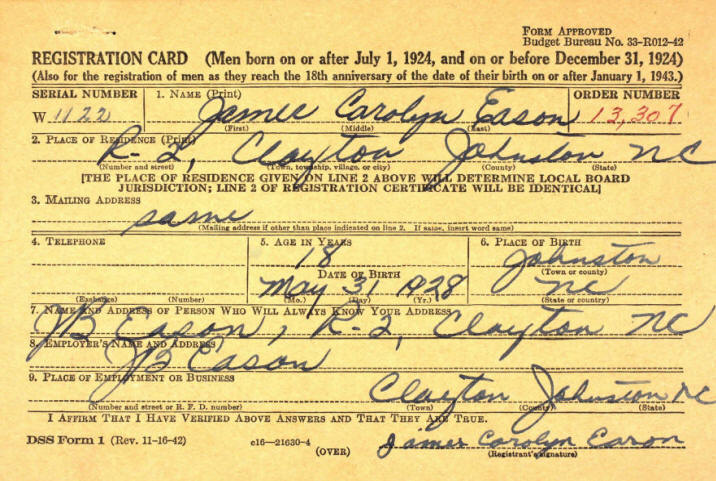 FORM APPROVED
Budget Bureau No. 33-R012-42
REGISTRATION CARD (Men born on or after July 1, 1924, and on or before December 31, 1924)
(Also for the registration of men as they reach the 18th anniversary of the date of their birth on or after January 1, 1943.)
SERIAL NUMBER 1. NAME (Print) ORDER NUMBER
W 1122 James Carolyn Eason 13,307
(First) (Middle) (Last)
2. PLACE OF RESIDENCE (Print)
R-2, Clayton Johnston NC
(Number and street) (Town, township, village, or city) (County) (State)
[THE PLACE OF RESIDENCE GIVEN ON LINE 2 ABOVE WILL DETERMINE LOCAL BOARD
JURISDICTION; LINE 2 OF REGISTRATION CERTIFICATE WILL BE IDENTICAL]
3. MAILING ADDRESS
same
(Mailing address if other than place indicated on line 2. If same, insert word same)
4. TELEPHONE 5. AGE IN YEARS 6. PLACE OF BIRTH
18 Johnston
DATE OF BIRTH (Town or county)
May 31 1928 NC
(Exchange) (Number) (Mo.) (Day) (Yr.) (State or country)
7. NAME AND ADDRESS OF PERSON WHO WILL ALWAYS KNOW YOUR ADDRESS
JB Eason, R-2, Clayton NC
8. EMPLOYER'S NAME AND ADDRESS
JB Eason
9. PLACE OF EMPLOYMENT OR BUSINESS
Clayton Johnston NC
(Number and street or R. F. D. number) (Town) (County) (State)
I AFFIRM THAT I HAVE VERIFIED ABOVE ANSWERS AND THAT THEY ARE TRUE.
DSS Form 1 (Rev. 11-16-42) c16—21630-4 James Carolyn Eason
(OVER) (Registrant's signature)